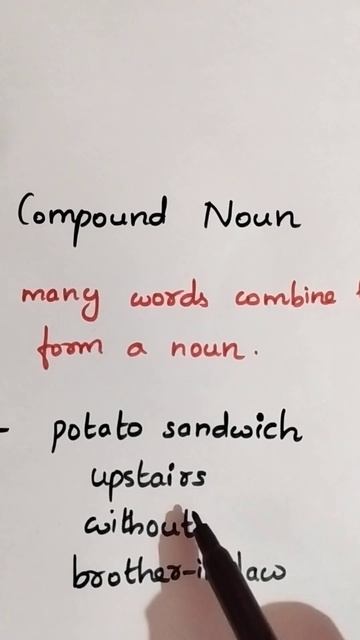 Compound Noun
many words combine
form a noun.
- potato sandwich
upstairs
without
brother-in-law